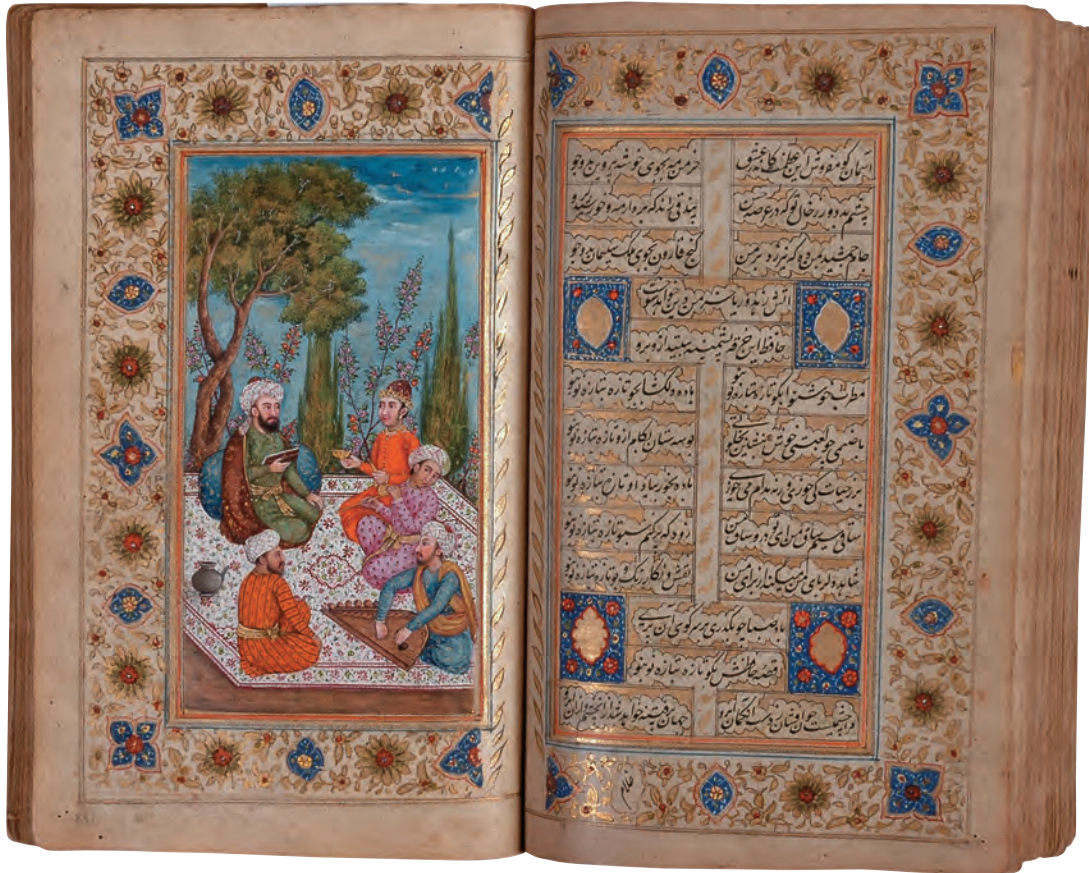 آسمان گو مفروش این عظمت کاندر عشق خرمن مه بجوی خوشه پروین بدو جو
چشم بد دور ز خال تو که در عرصه حسن بیدقی راند که برد از مه و خورشید گرو
جام جمشید بمن ده که نیرزد بر من گنج قارون بجوی ملک سلیمان بدو جو
آتش زهد و ریا خرمن دین خواهد سوخت
حافظ این خرقه پشمینه بینداز و برو
مطرب خوشنوا بگو تازه بتازه نو بنو باده دلکشا بجو تازه بتازه نو بنو
با صنمی چو لعبتی خوش بنشین بخلوتی بوسه ستان بکام ازو تازه بتازه نو بنو
بر ز حیات کی خوری گر نه مدام می خوری باده بخور بیاد او تازه بتازه نو بنو
ساقی سیم ساق من زود که پر کنم سبو تازه بتازه نو بنو
شاهد دلربای من میکند از برای من نقش و نگار و رنگ و بو تازه بتازه نو بنو
باد صبا چو بگذری بر سر کوی آن پری
قصه حافظش بگو تازه بتازه نو بنو
غلام